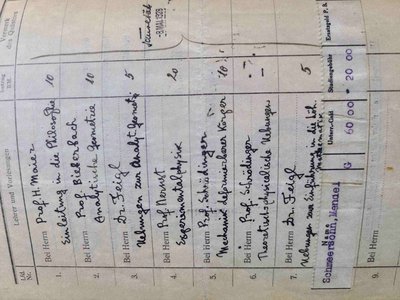 Lfd. Nr.
Lehrer und Vorlesungen
Betrag RM
Vermerk des Quästors
1. Bei Herrn Prof. H. Maier
Einleitung in die Philosophie 10
2. Bei Herrn Prof. Bieberbach
Analytische Geometrie 10
3. Bei Herrn Dr. Feigl
Uebungen zur Analyt. Geometrie 5
4. Bei Herrn Prof. Nernst
Experimentalphysik 20
-8. MAI 1928
5. Bei Herrn Prof. Schrödinger
Mechanik deformierbarer Körper 10
6. Bei Herrn Prof. Schrödinger
Theoretisch physicalische Uebungen -
7. Bei Herrn Dr. Feigl
Uebungen zur Einführung in die höh. mathematik 5
Name
Unterr.-Geld
Studiengebühr
Ersatzgeld P. &
Schneersohn, Mendel G 60 00 * 20 00
9. Bei Herrn